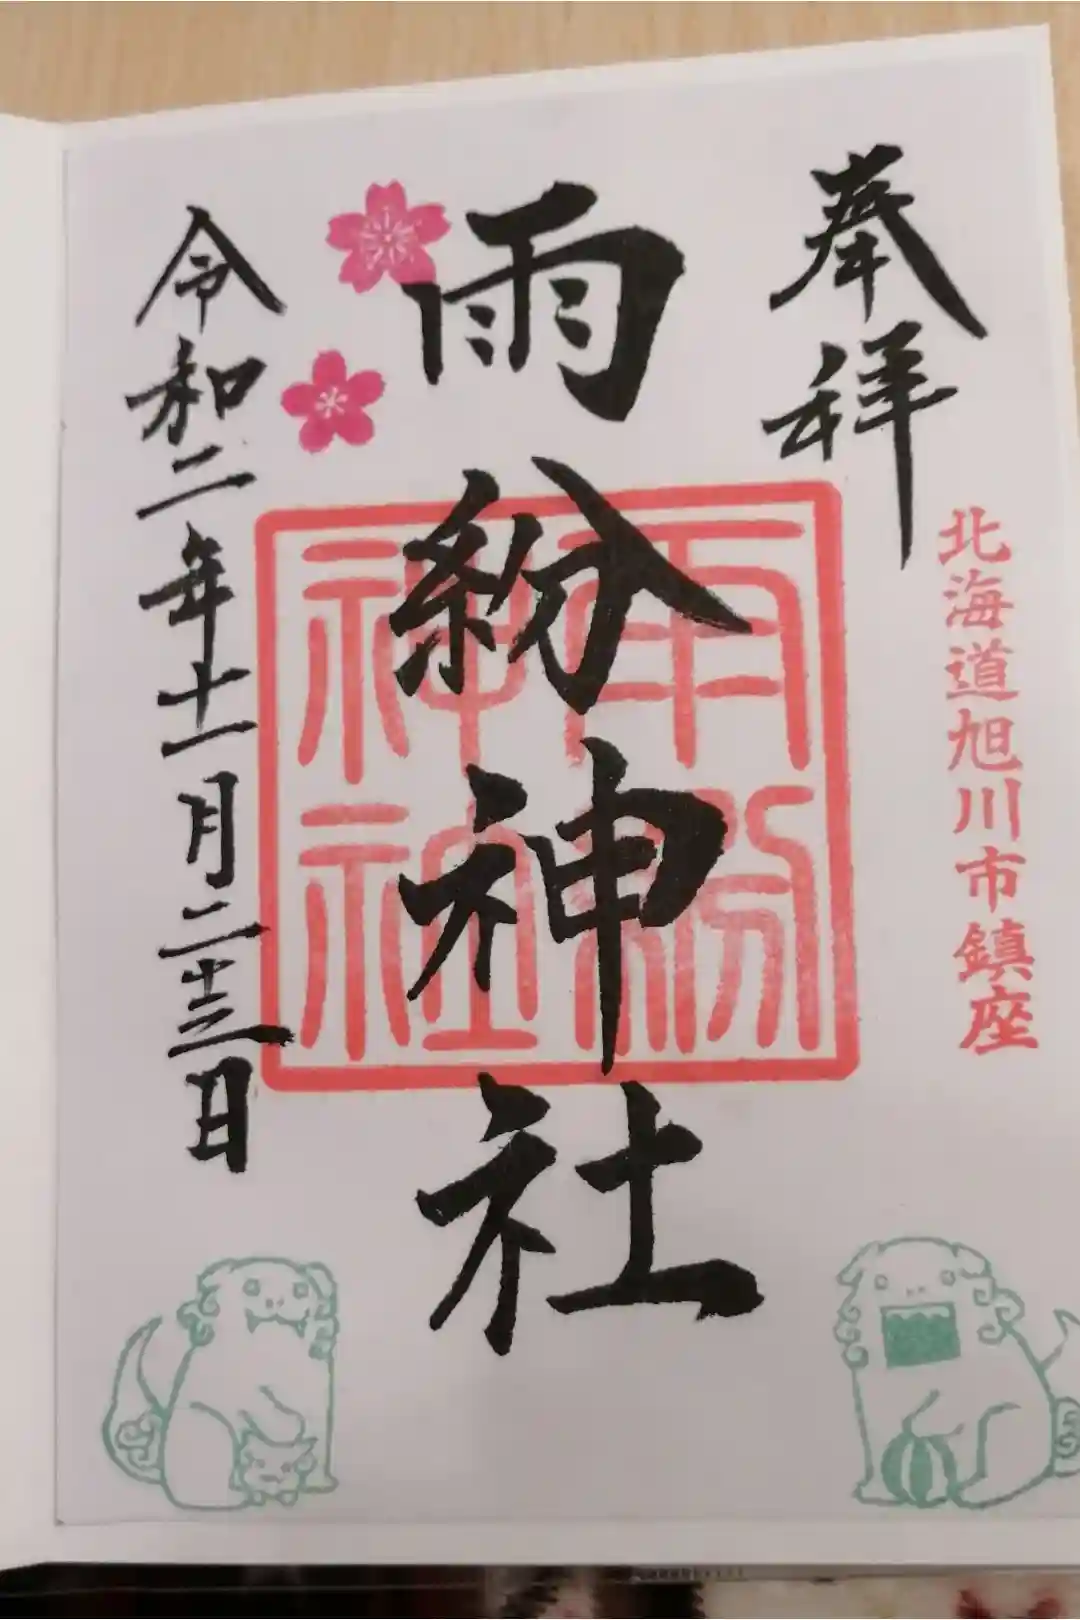 奉拝
北海道旭川市鎮座
雨紛神社
雨紛
神社
令和二年十一月二十三日